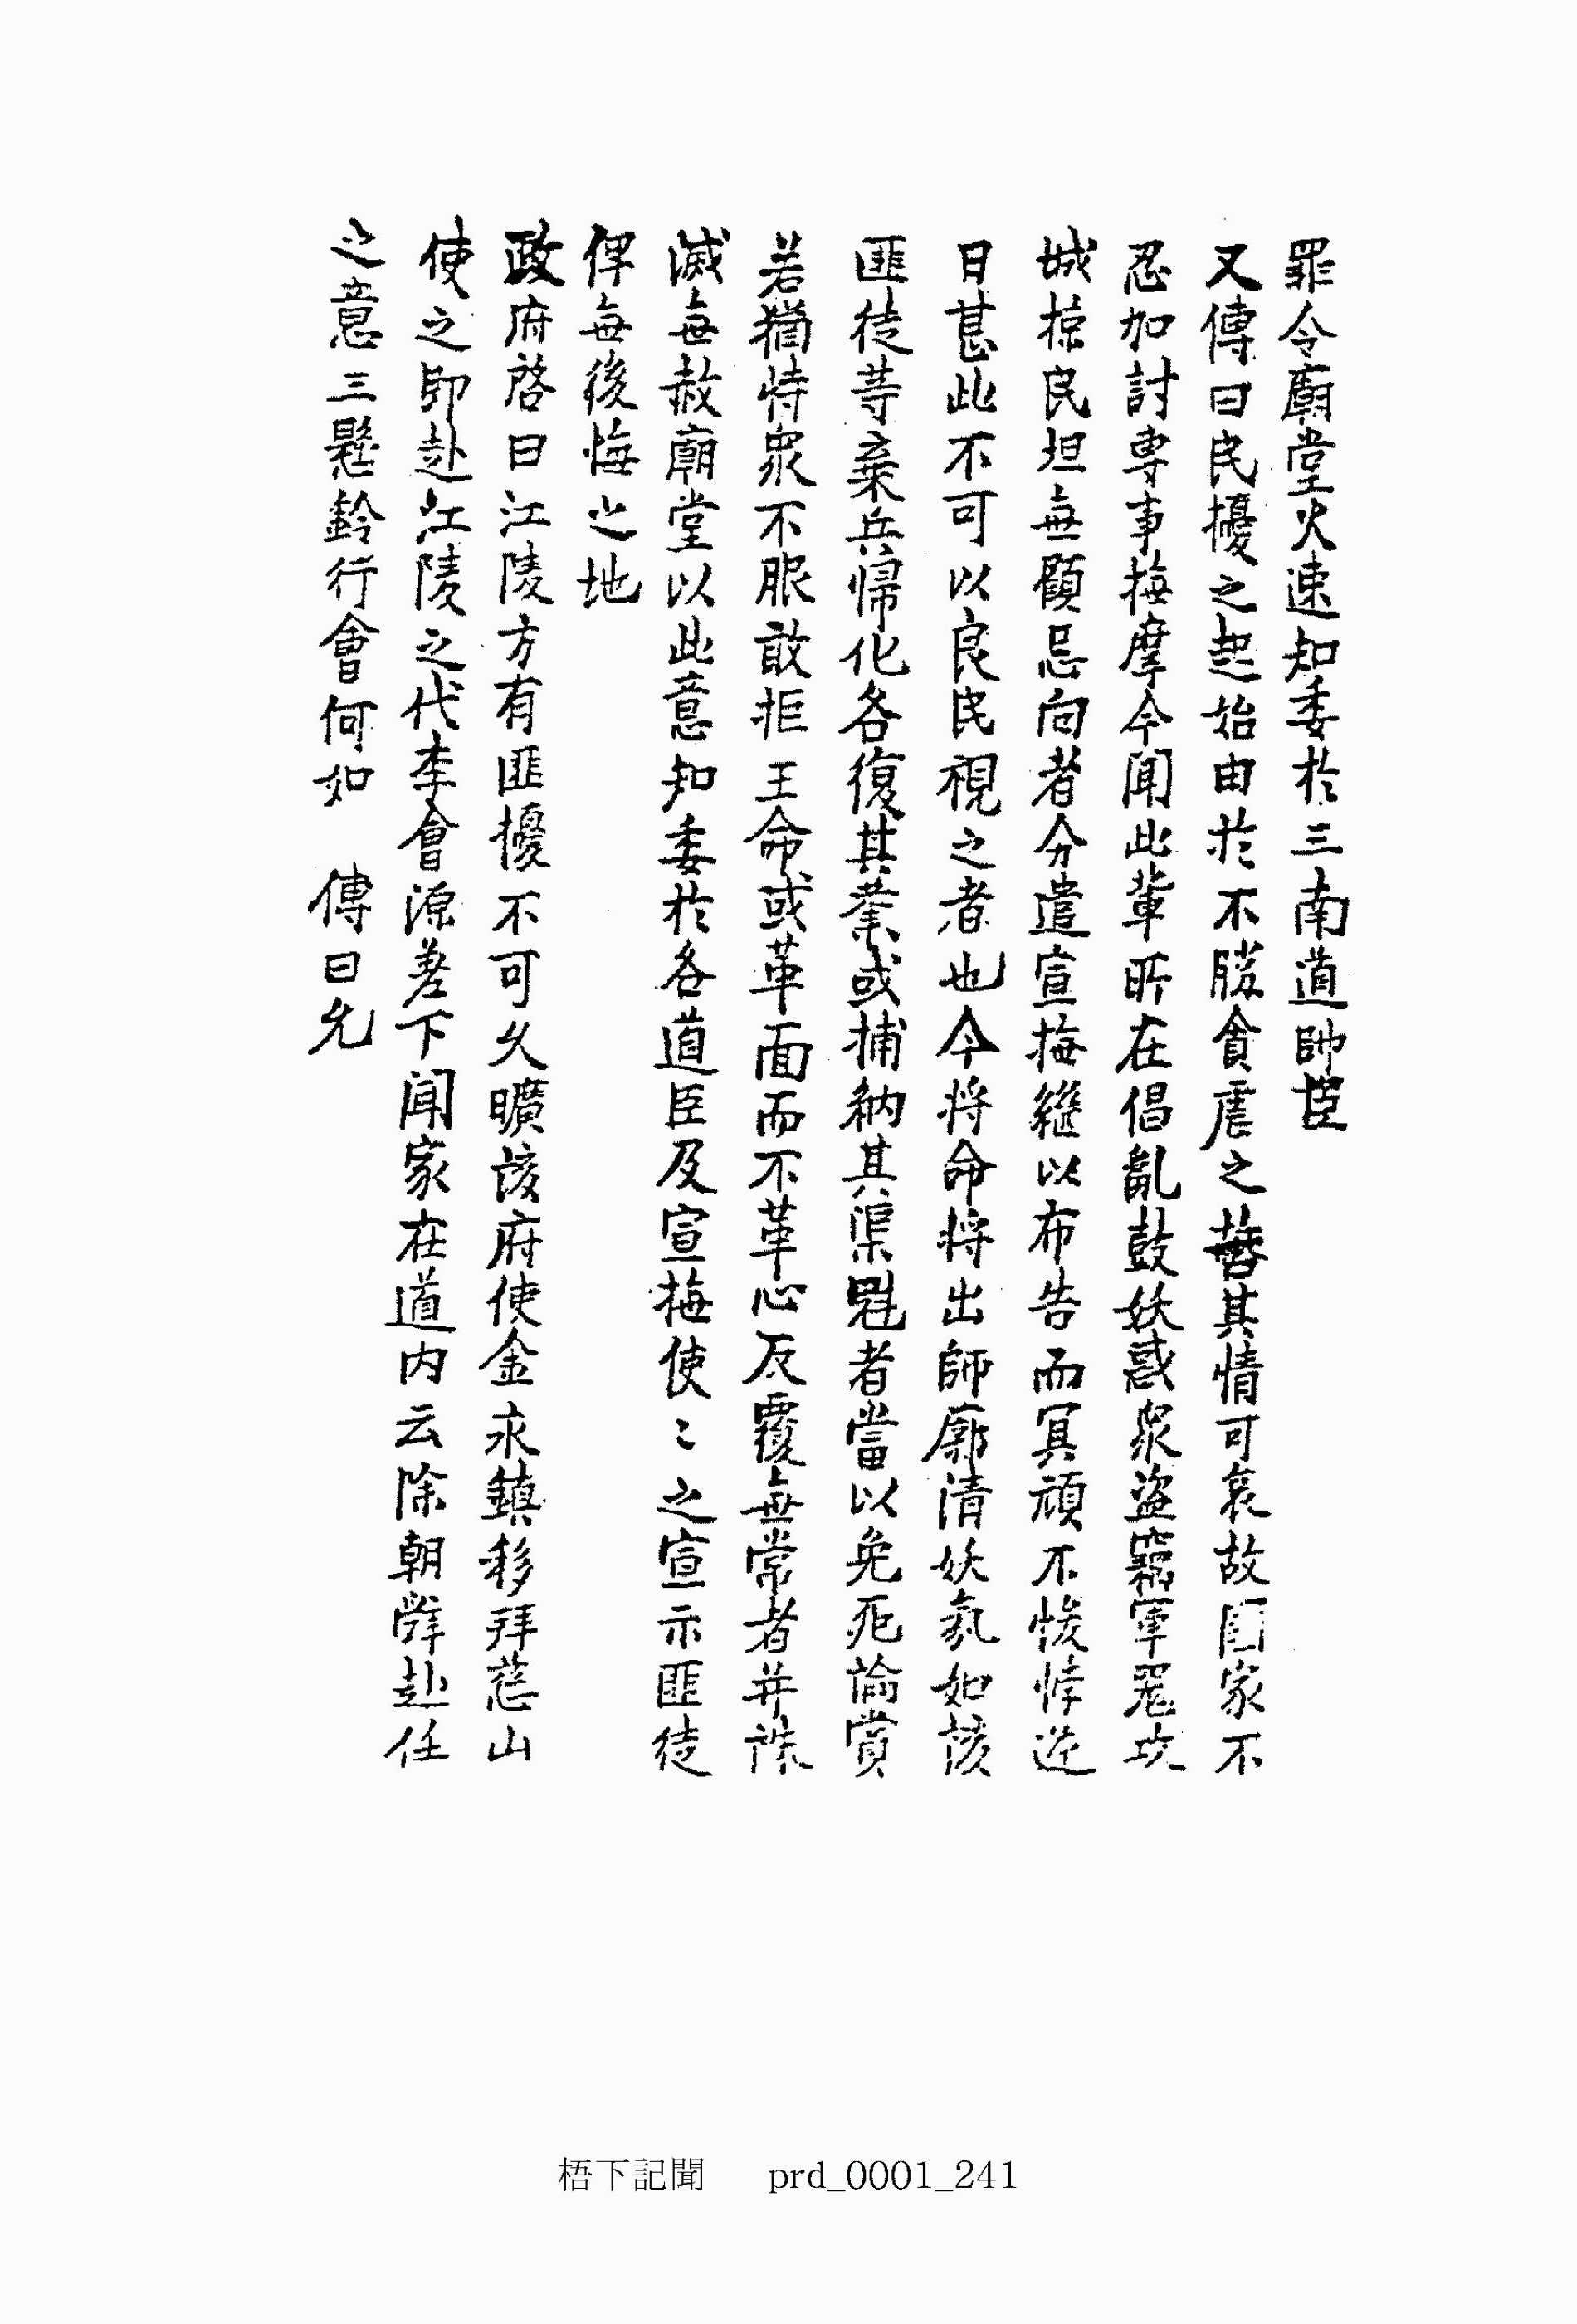 罪令廟堂火速知委於三南道帥臣
又傳曰民擾之起始由於不勝貪虐之苦其情可哀故国家不
忍加討専事撫摩今聞此輩所在倡亂鼓妖惑衆盗竊軍器攻
城掠民坦無顧忌向者分遣宣撫繼以布告而冥頑不悛悖逆
日甚此不可以良民視之者也今将命将出師廓清妖氛如該
匪徒等棄兵歸化各復其業或捕納其渠魁者當以免死論賞
若猶恃衆不服敢拒王命或革面而不革心反覆無常者并誅
滅無赦廟堂以此意知委於各道臣及宣撫使〻之宣示匪徒
俾無後悔之地
政府啓曰江陵方有匪擾不可久曠該府使金永鎮移拜慈山
使之卽赴江陵之代李會源差下聞家在道内云除朝辭赴任
之意三懸鈴行會何如 傳曰允
梧下記聞 prd_0001_241